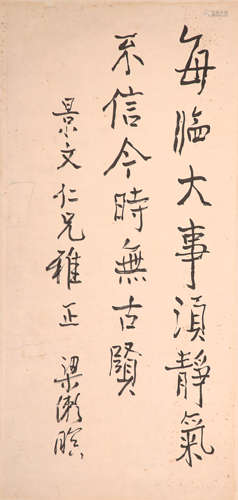 每臨大事須靜氣
不信今時無古賢
景文仁兄雅正 梁漱瞑